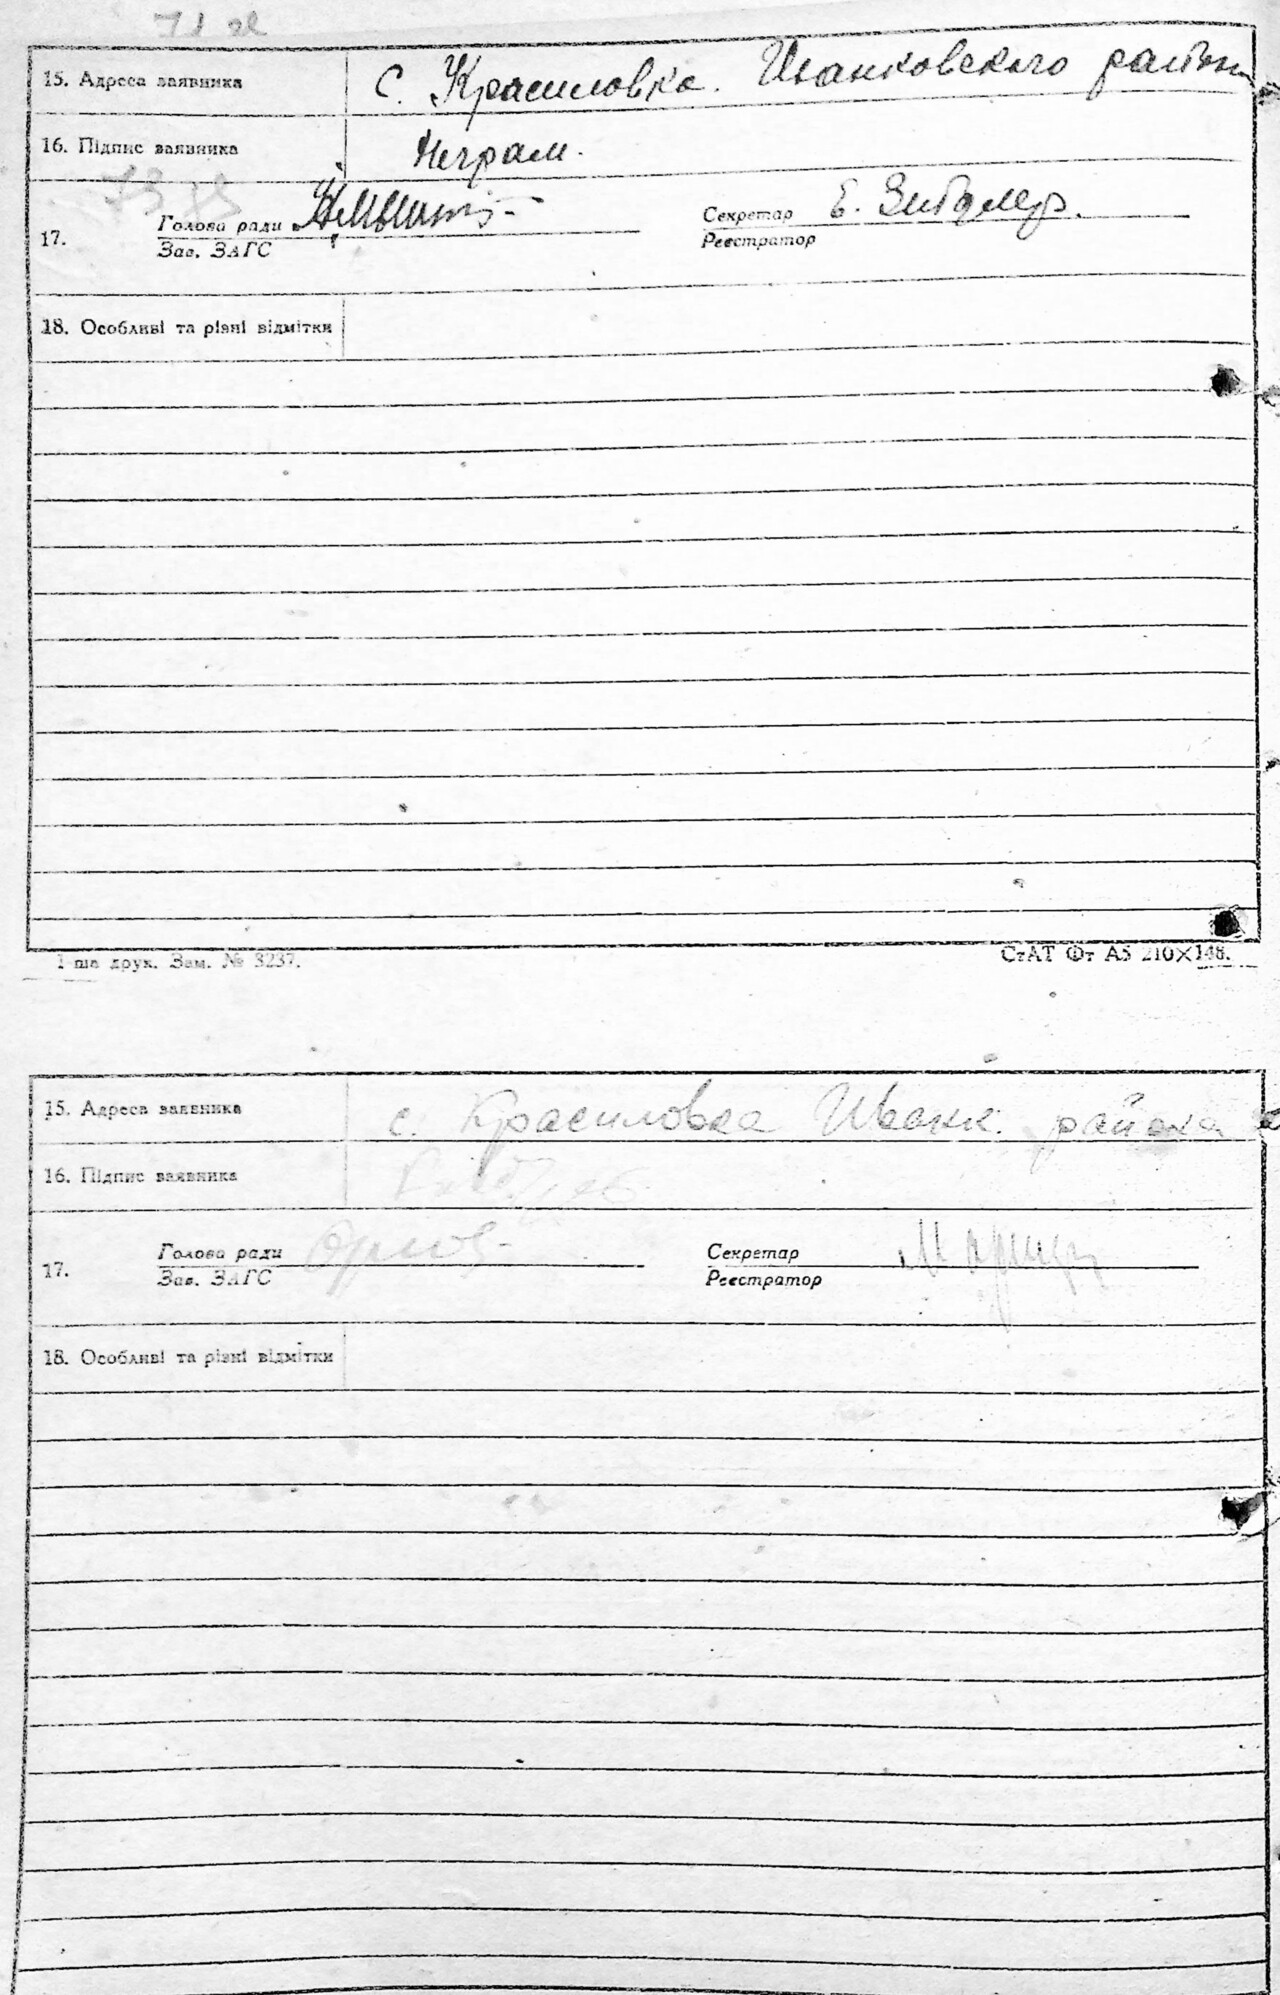 15. Адреса заявника с. Красиловка. Иванковского района
16. Підпис заявника Неграм.
17. Голова ради Секретар Е.
Зав. ЗАГС Реєстратор
18. Особливі та різні відмітки
1-ша друк. Зам. № 3237. СтАТ Фт А5 210×148.
15. Адреса заявника с. Красиловка Иванк. района
16. Підпис заявника
17. Голова ради Орлов Секретар
Зав. ЗАГС Реєстратор
18. Особливі та різні відмітки